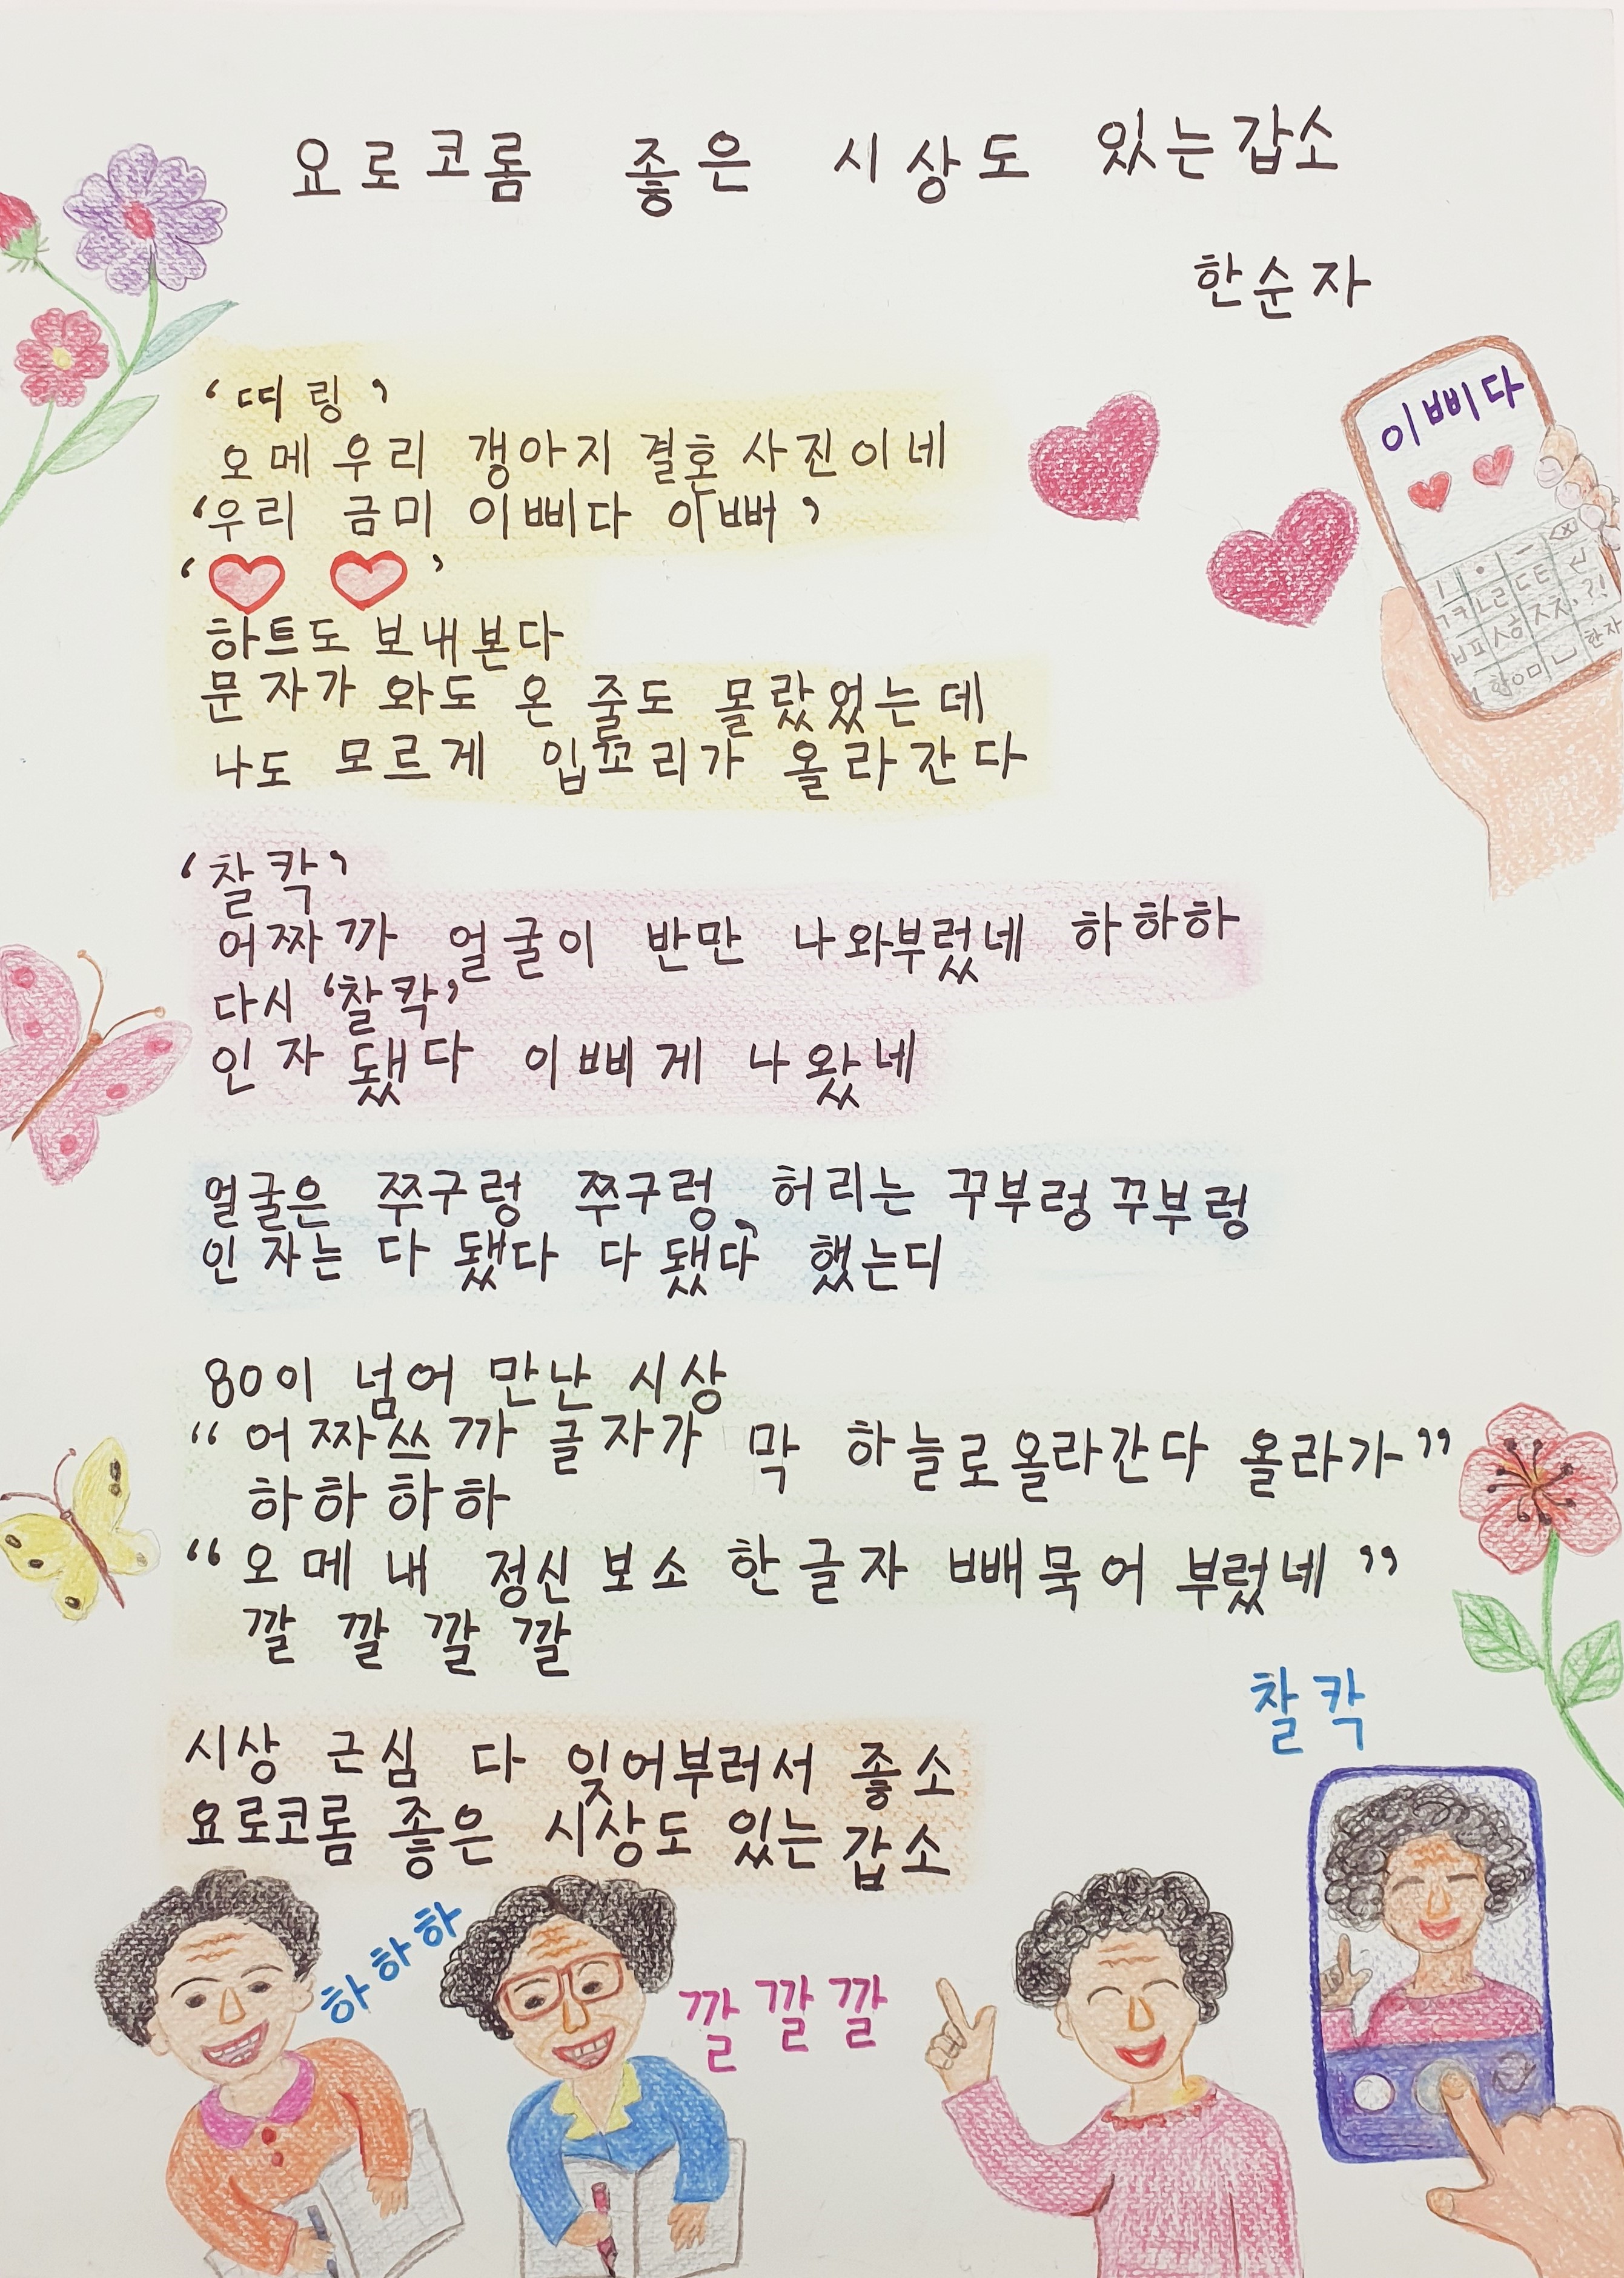 요로코롬 좋은 시상도 있는갑소
한순자
‘띠링’
오메 우리 갱아지 결혼 사진이네
‘우리 금미 이삐다 이뻐’
‘♡ ♡’
하트도 보내본다
문자가 와도 온 줄도 몰랐었는데
나도 모르게 입꼬리가 올라간다
‘찰칵’
어짜까 얼굴이 반만 나와부렀네 하하하
다시 ‘찰칵’
인자 됐다 이삐게 나왔네
얼굴은 쭈구렁 쭈구렁, 허리는 꾸부렁꾸부렁
인자는 다 됐다 다 됐다, 했는디
80이 넘어 만난 시상
“어짜쓰까 글자가 막 하늘로올라간다 올라가”
하하하하
“오메 내 정신보소 한글자 빼묵어 부렀네”
깔 깔 깔 깔
시상 근심 다 잊어부러서 좋소
요로코롬 좋은 시상도 있는갑소
이삐다
ㅣ · ㅡ
ㄱㅋ ㄴㄹ ㄷㅌ
ㅂㅍ ㅅㅎ ㅈㅊ .?!
ㅇㅁ 한자
찰칵
하하하
깔깔깔